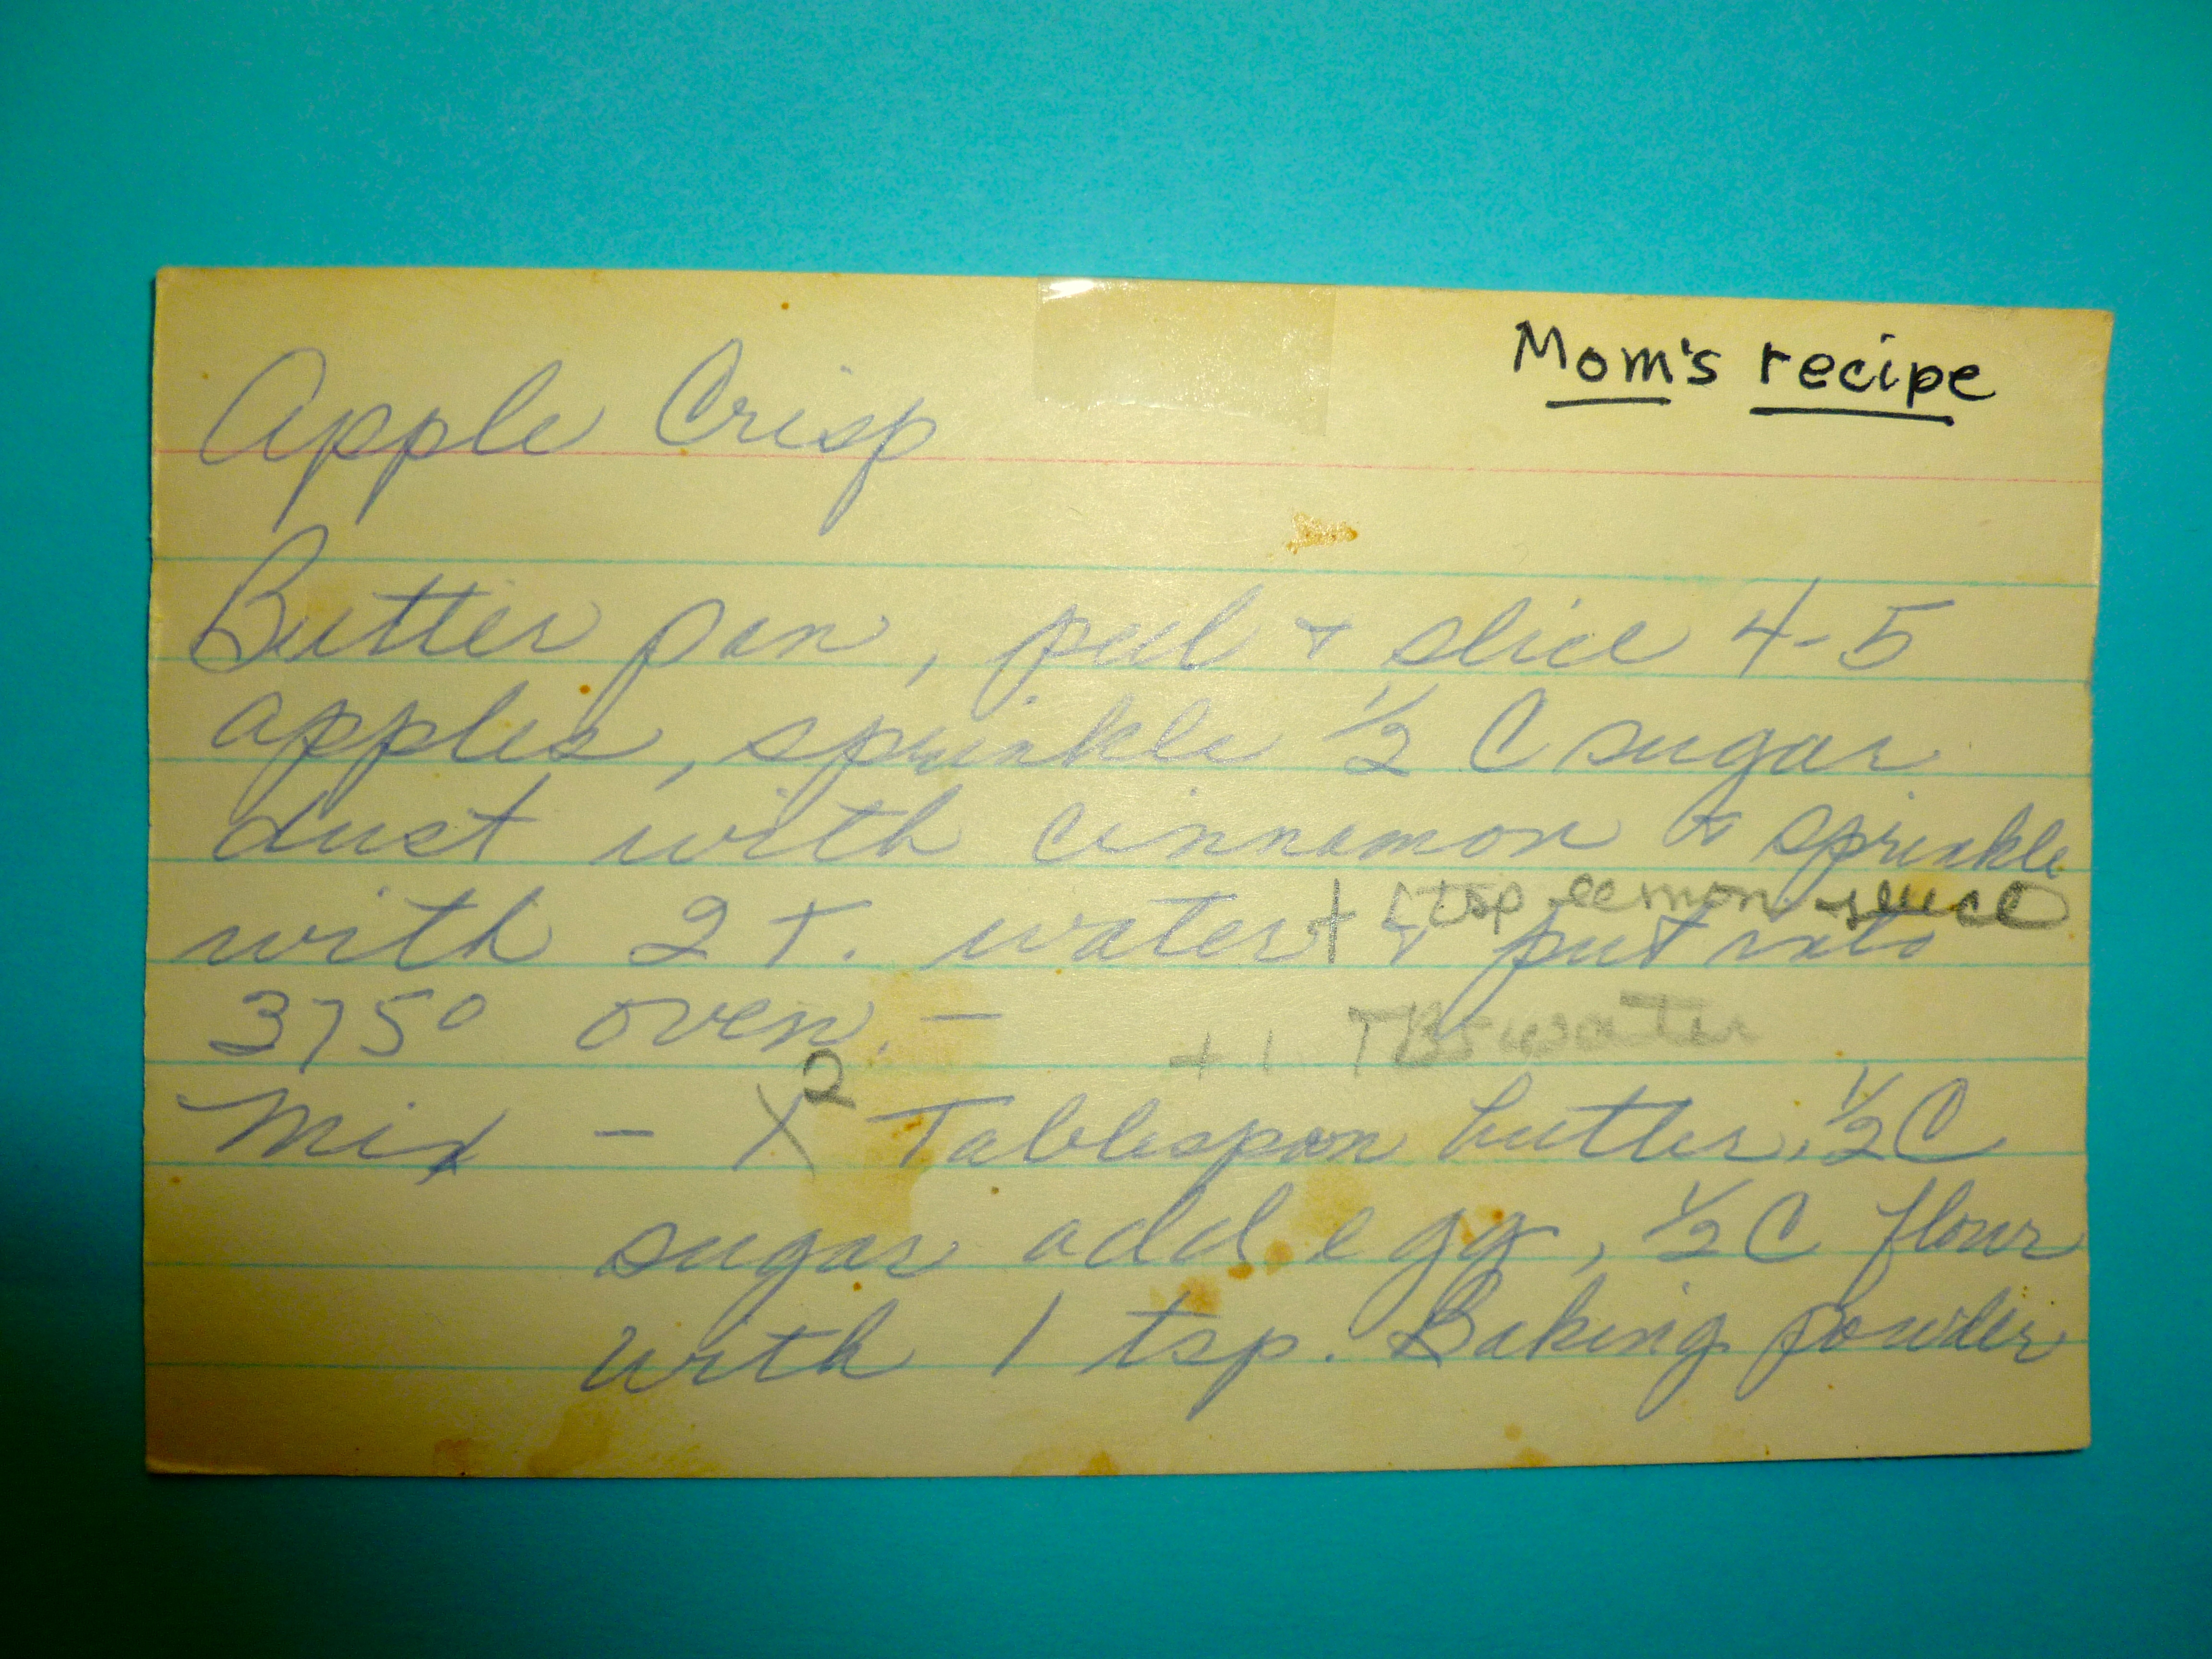 Mom's recipe
Apple Crisp
Butter pan, peel + slice 4-5
apples, sprinkle 1/2 C sugar
dust with cinnamon & sprinkle
+ 1 tsp lemon juice
with 2 T. water & put into
375° oven. -
+ 1 TBS water
2
Mix - 1 Tablespoon butter, 1/2 C
sugar add egg, 1/2 C flour
with 1 tsp. Baking powder